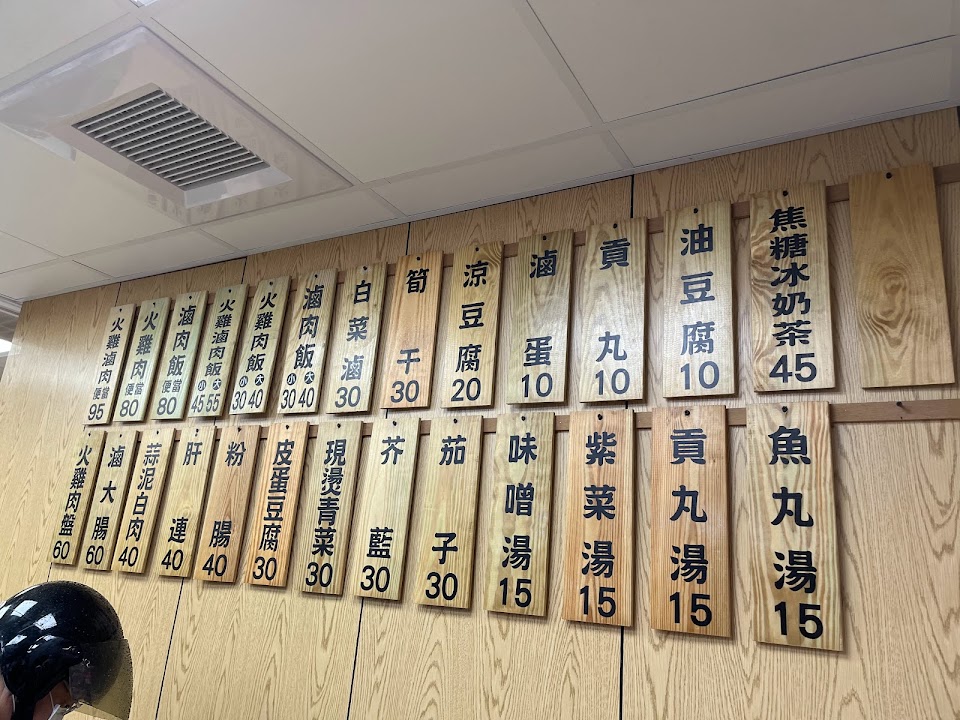 火雞滷肉便當 95
火雞肉便當 80
滷肉飯便當 80
火雞滷肉飯 小45 大55
火雞肉飯 小30 大40
滷肉飯 小30 大40
白菜滷 30
筍干 30
涼豆腐 20
滷蛋 10
貢丸 10
油豆腐 10
焦糖冰奶茶 45
火雞肉盤 60
滷大腸 60
蒜泥白肉 40
肝連 40
粉腸 40
皮蛋豆腐 30
現燙青菜 30
芥藍 30
茄子 30
味噌湯 15
紫菜湯 15
貢丸湯 15
魚丸湯 15